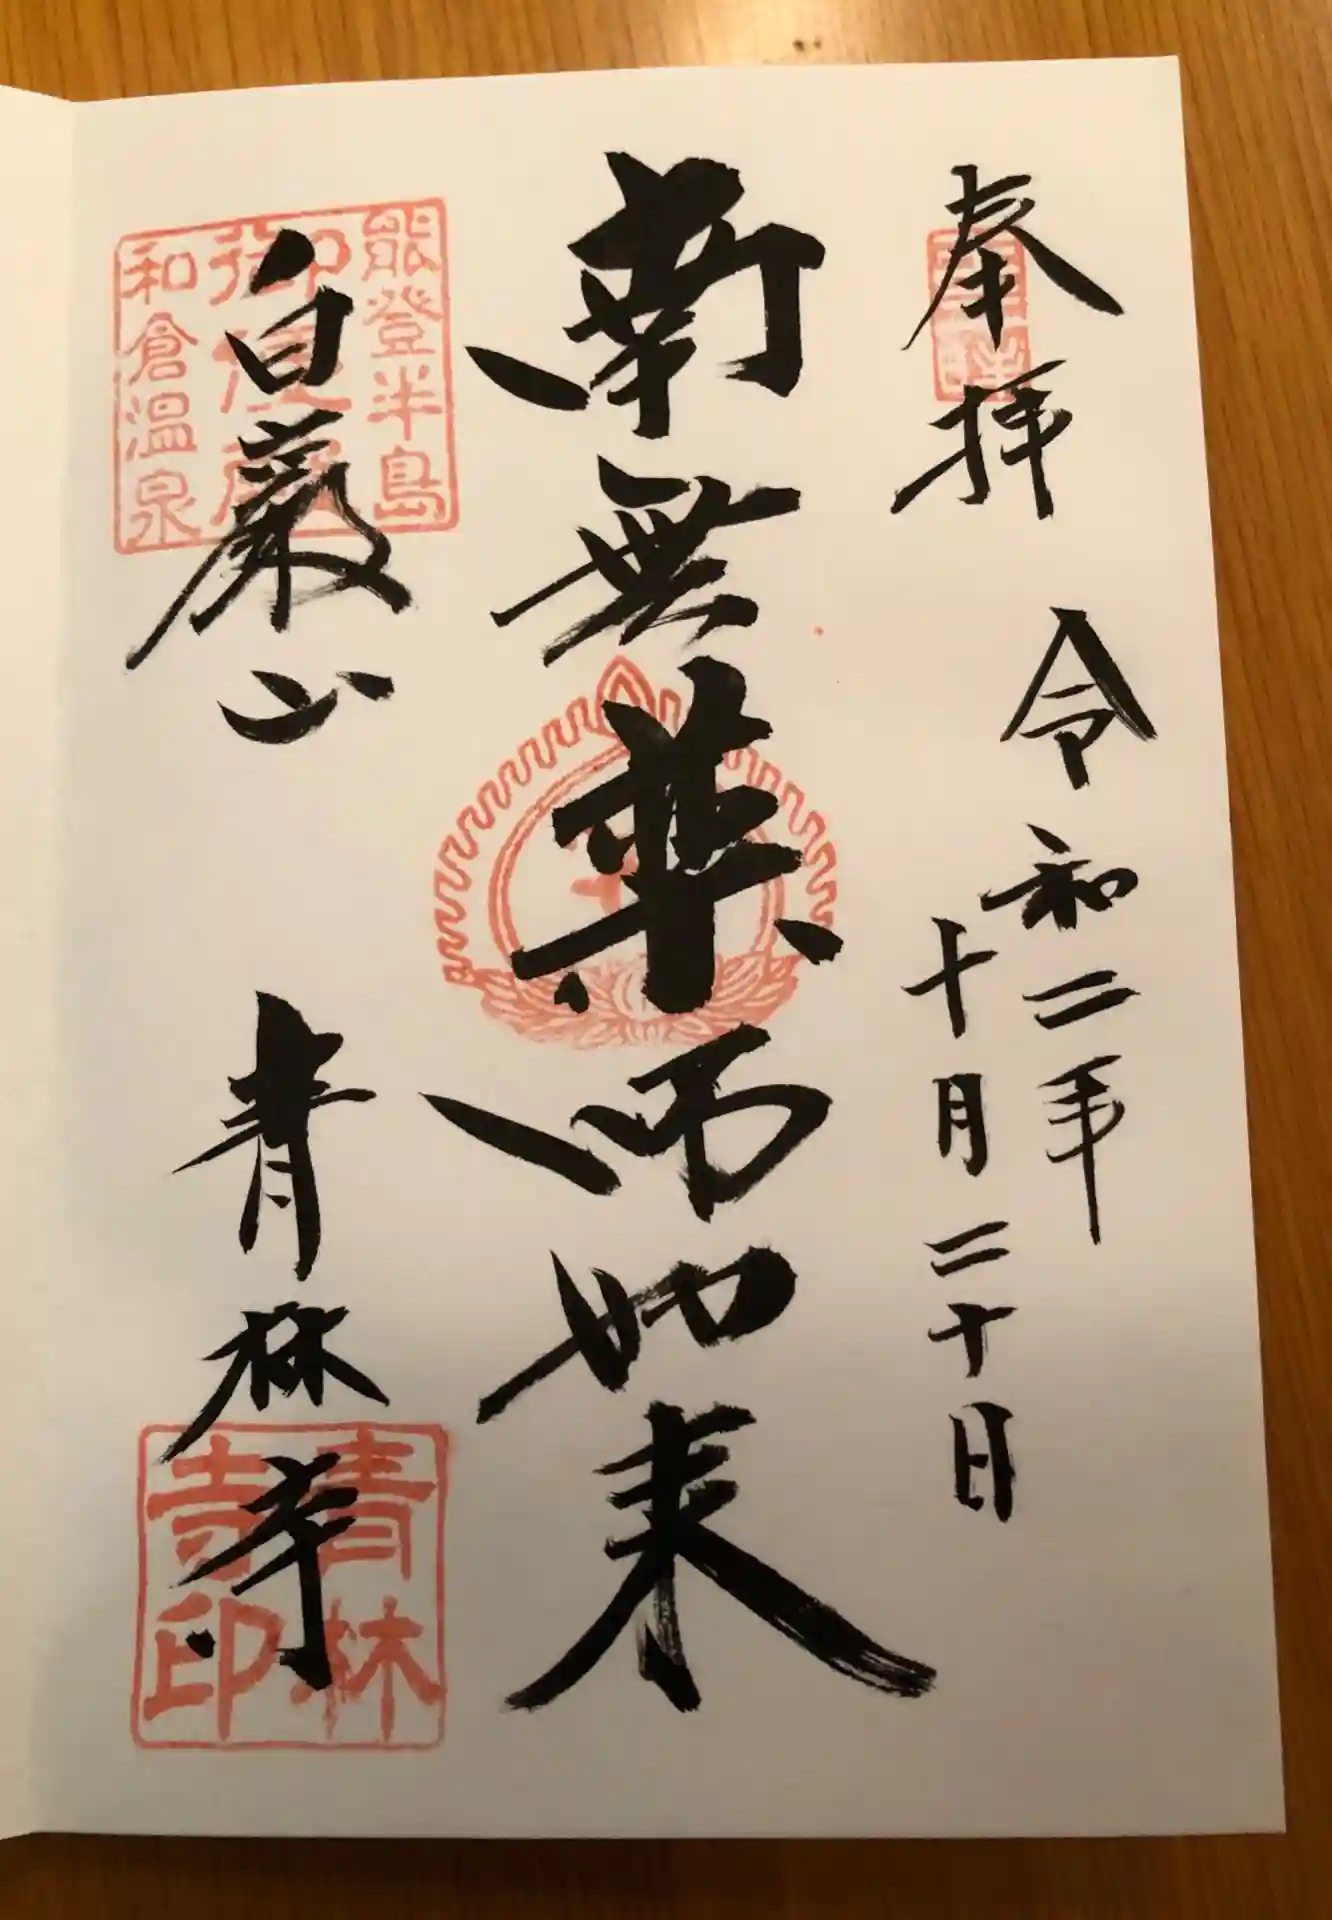 奉拝
令和二年
十月二十日
南無薬師如来
白巌山 青林寺
能登半島
御便殿
和倉温泉
青林
寺印